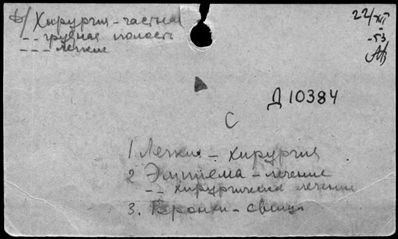 б/ Хирургия - частная
-- грудная полость
--- легкие
22/XII
-53
Д 10384
С
1 Легкие - хирургия
2 Эмпиема - лечение
-- хирургическое лечение
3. Бронхи - свищи